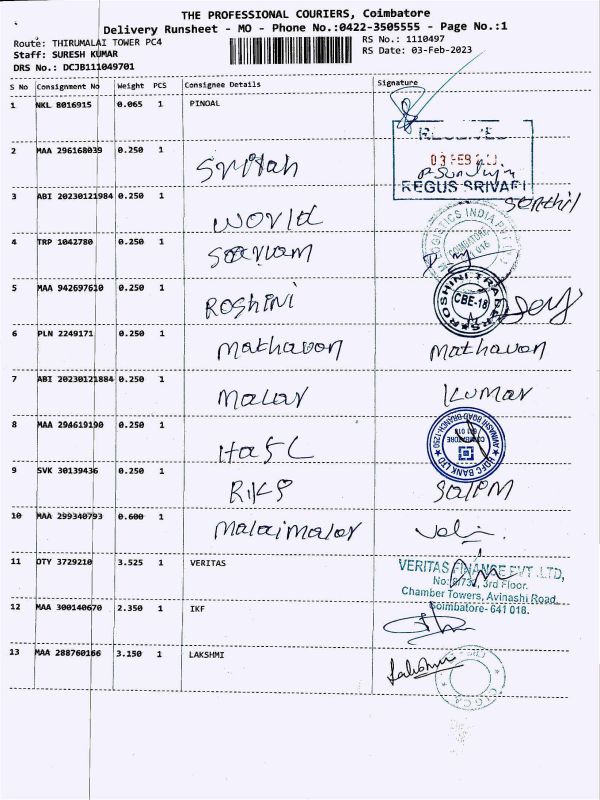 THE PROFESSIONAL COURIERS, Coimbatore
Delivery Runsheet - MO - Phone No.:0422-3505555 - Page No.:1
Route: THIRUMALAI TOWER PC4
RS No.: 1110497
Staff: SURESH KUMAR
RS Date: 03-Feb-2023
DRS No.: DCJB111049701
S No Consignment No Weight PCS Consignee Details Signature
1 NKL 8016915 0.065 1 PINOAL
03 FEB
REGUS SRIVARI
2 MAA 296168039 0.250 1
3 ABI 20230121984 0.250 1 World Senthil
LOGISTICS INDIA PVT
COIMBATORE
4 TRP 1042780 0.250 1
5 MAA 942697610 0.250 1 Roshini
ROSHINI TRADERS
CBE-18
6 PLN 2249171 0.250 1 Mathavan Mathavan
7 ABI 20230121884 0.250 1 Malar Kumar
8 MAA 294619190 0.250 1
HDFC BANK LTD AVINASHI ROAD BRANCH-1250
COIMBATORE
641 018
9 SVK 30139436 0.250 1
10 MAA 299340793 0.600 1 Malaimalar
11 OTY 3729210 3.525 1 VERITAS
VERITAS FINANCE PVT .LTD,
3rd Floor.
Chamber Towers, Avinashi Road,
Coimbatore- 641 018.
12 MAA 300140670 2.350 1 IKF
13 MAA 288760166 3.150 1 LAKSHMI Lakshmi